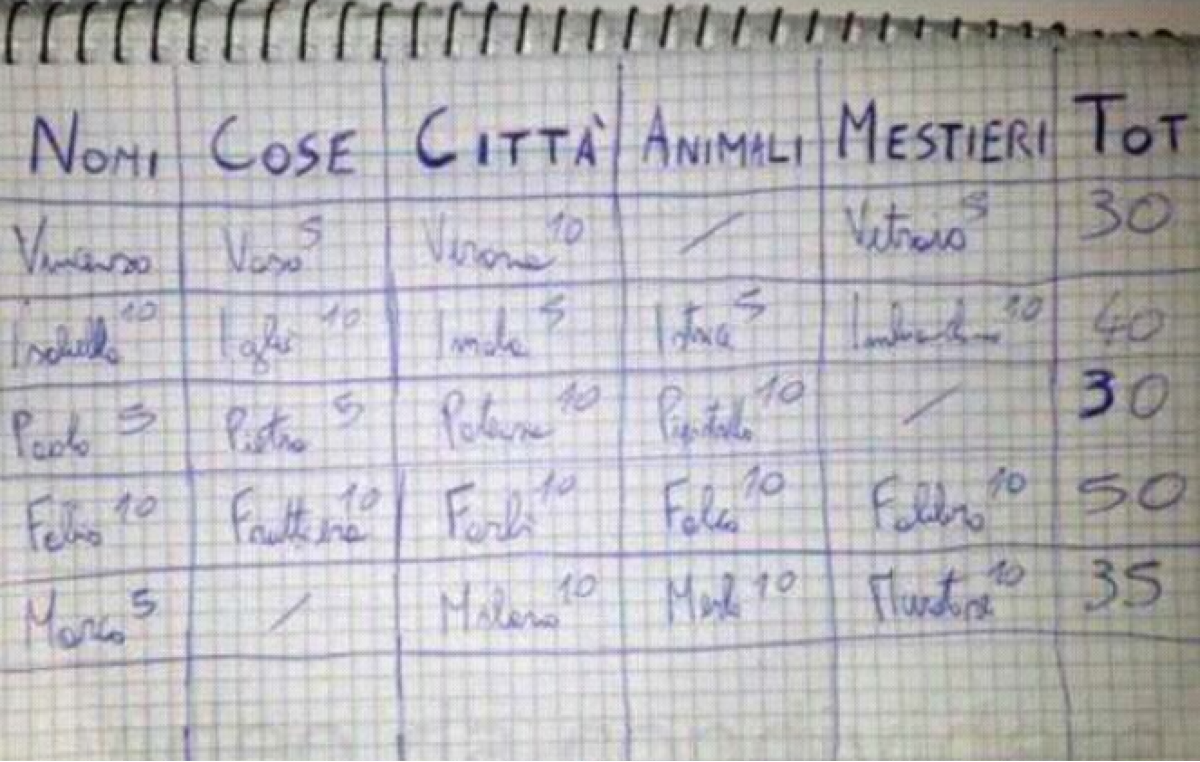 NOMI COSE CITTÀ ANIMALI MESTIERI TOT
Vincenzo Vaso 5 Verona 10 / Vetraio 5 30
Isabella 10 Igloo 10 Imola 5 Istrice 5 10 40
Paolo 5 Pietra 5 Potenza 10 Pipistrello 10 / 30
Fabio 10 Fruttiera 10 Forlì 10 Falco 10 Fabbro 10 50
Marco 5 / Milano 10 Merlo 10 Muratore 10 35